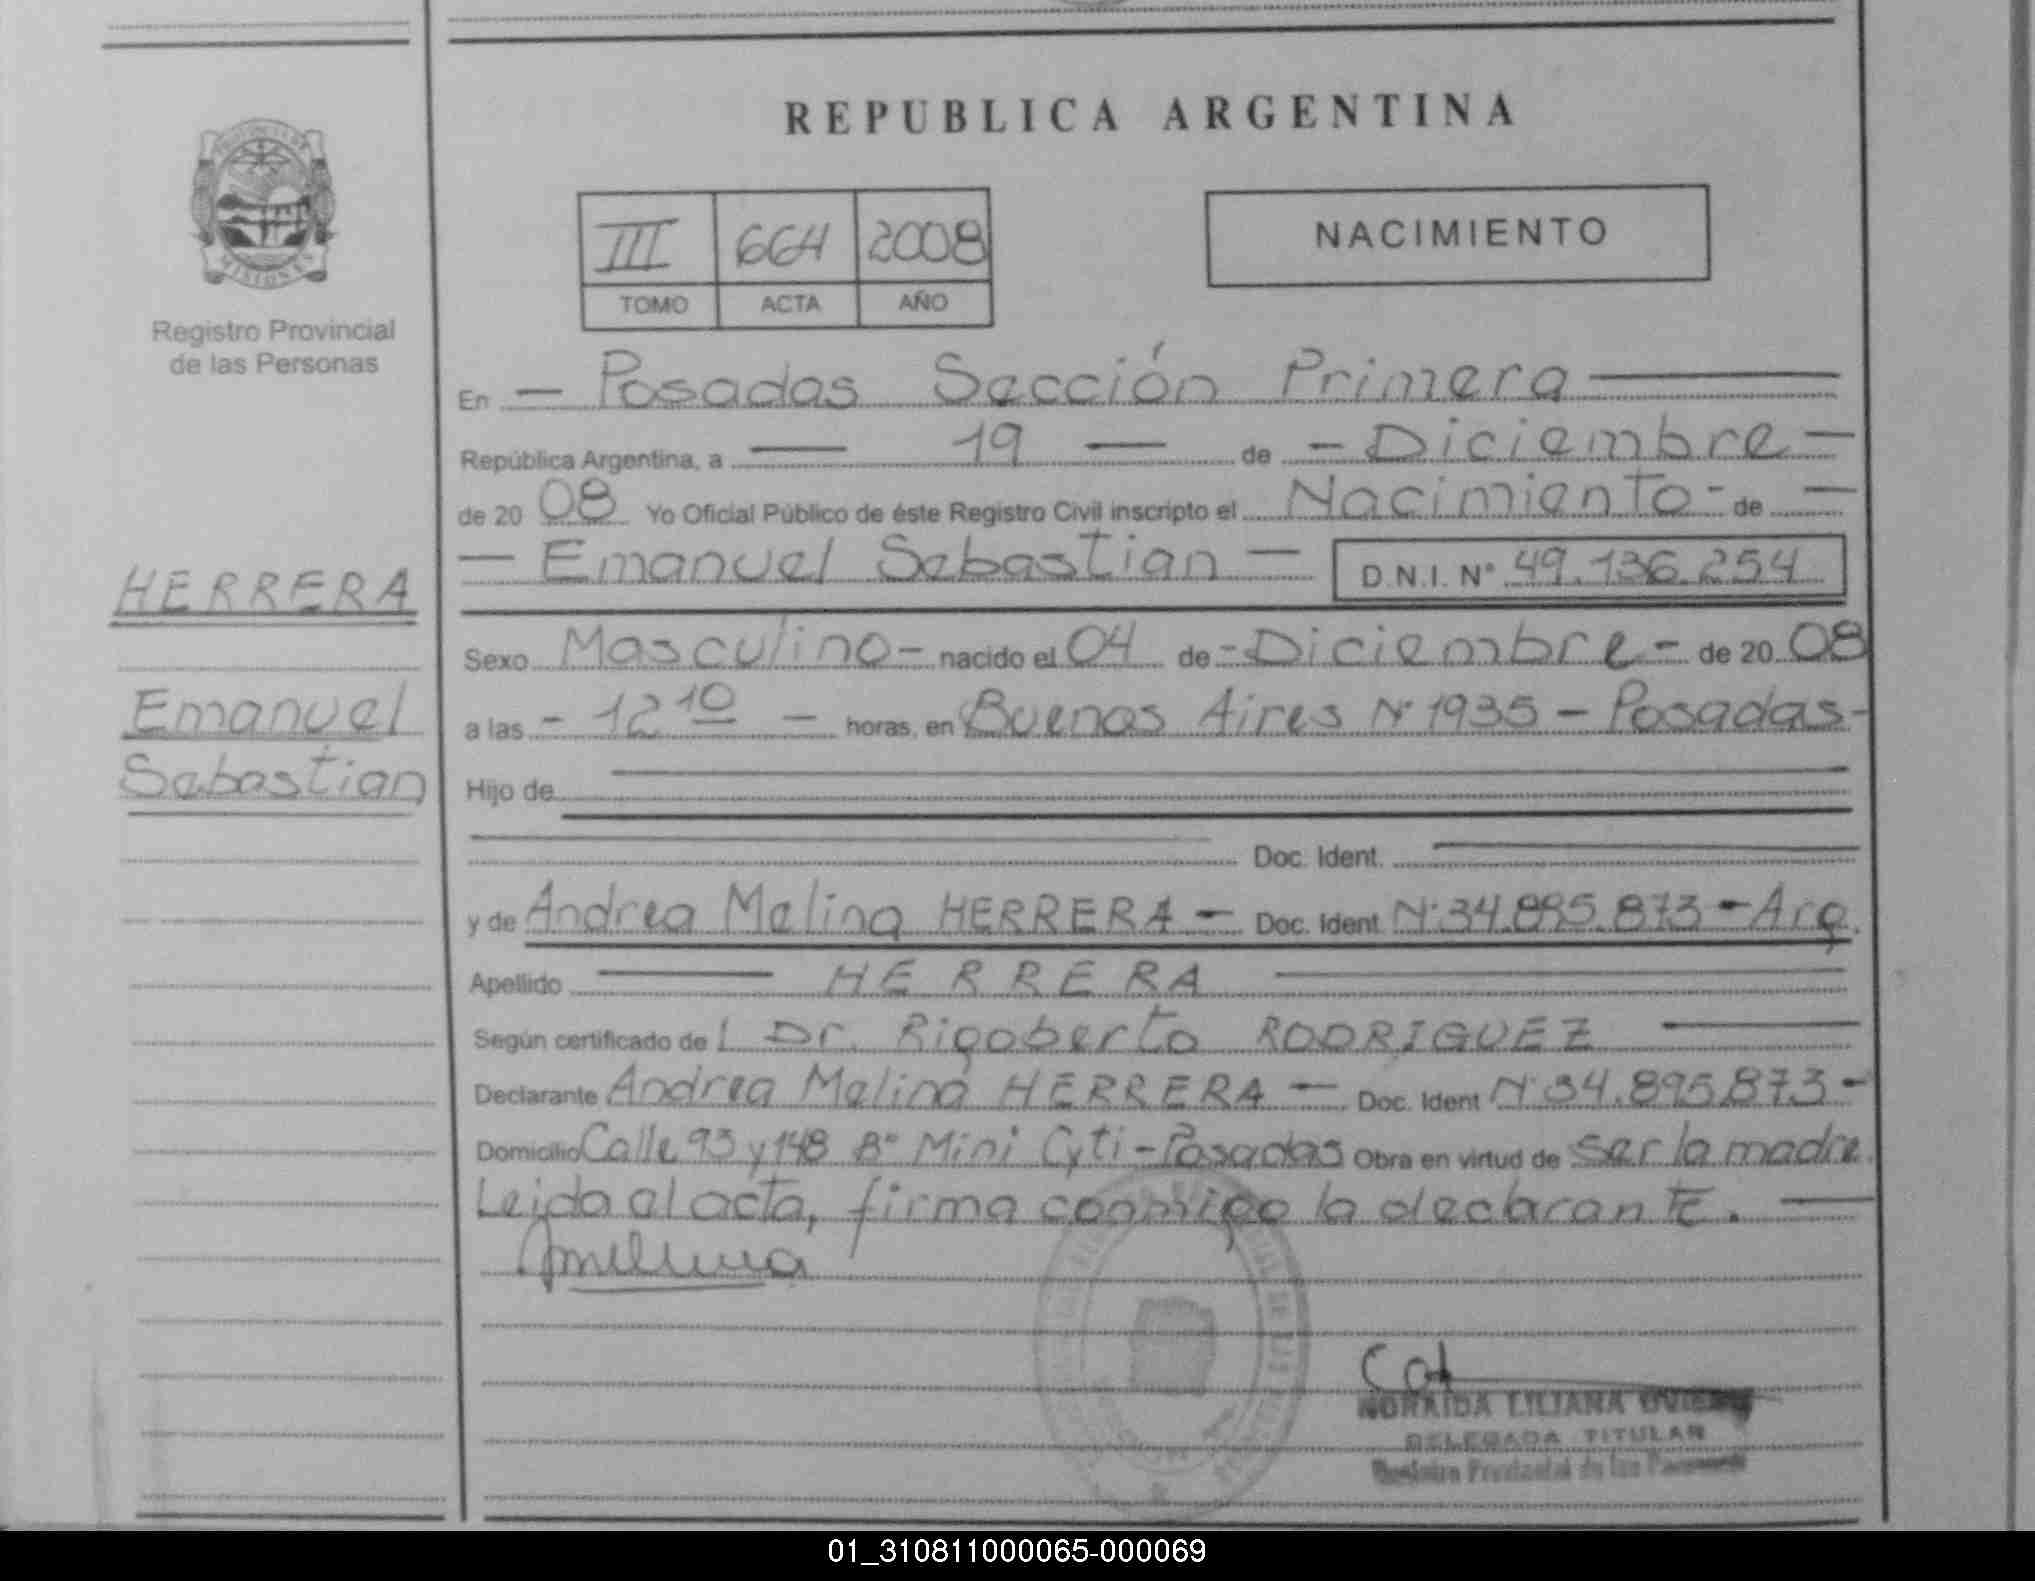 REPUBLICA ARGENTINA
PROVINCIA DE
MISIONES
Registro Provincial
de las Personas
III 664 2008
TOMO ACTA AÑO
NACIMIENTO
En — Posadas Sección Primera —
República Argentina, a — 19 — de — Diciembre —
de 20 08 Yo Oficial Público de éste Registro Civil inscripto el Nacimiento - de —
— Emanuel Sebastian — D.N.I. N° 49.136.254
HERRERA
Emanuel
Sebastian
Sexo Masculino - nacido el 04 de - Diciembre - de 20 08
a las - 12 10 - horas, en Buenos Aires N° 1935 - Posadas -
Hijo de
Doc. Ident.
y de Andrea Melina HERRERA - Doc. Ident. N° 34.895.873 - Arg.
Apellido — HERRERA —
Según certificado de l Dr. Rigoberto RODRIGUEZ —
Declarante Andrea Melina HERRERA — Doc. Ident N° 34.895.873 -
Domicilio Calle 93 y 148 B° Mini Cyti - Posadas Obra en virtud de ser la madre.
Leida el acta, firma conmigo la declarante. —
NORAIDA LILIANA
DELEGADA TITULAR
Registro Provincial de las Personas
01_310811000065-000069